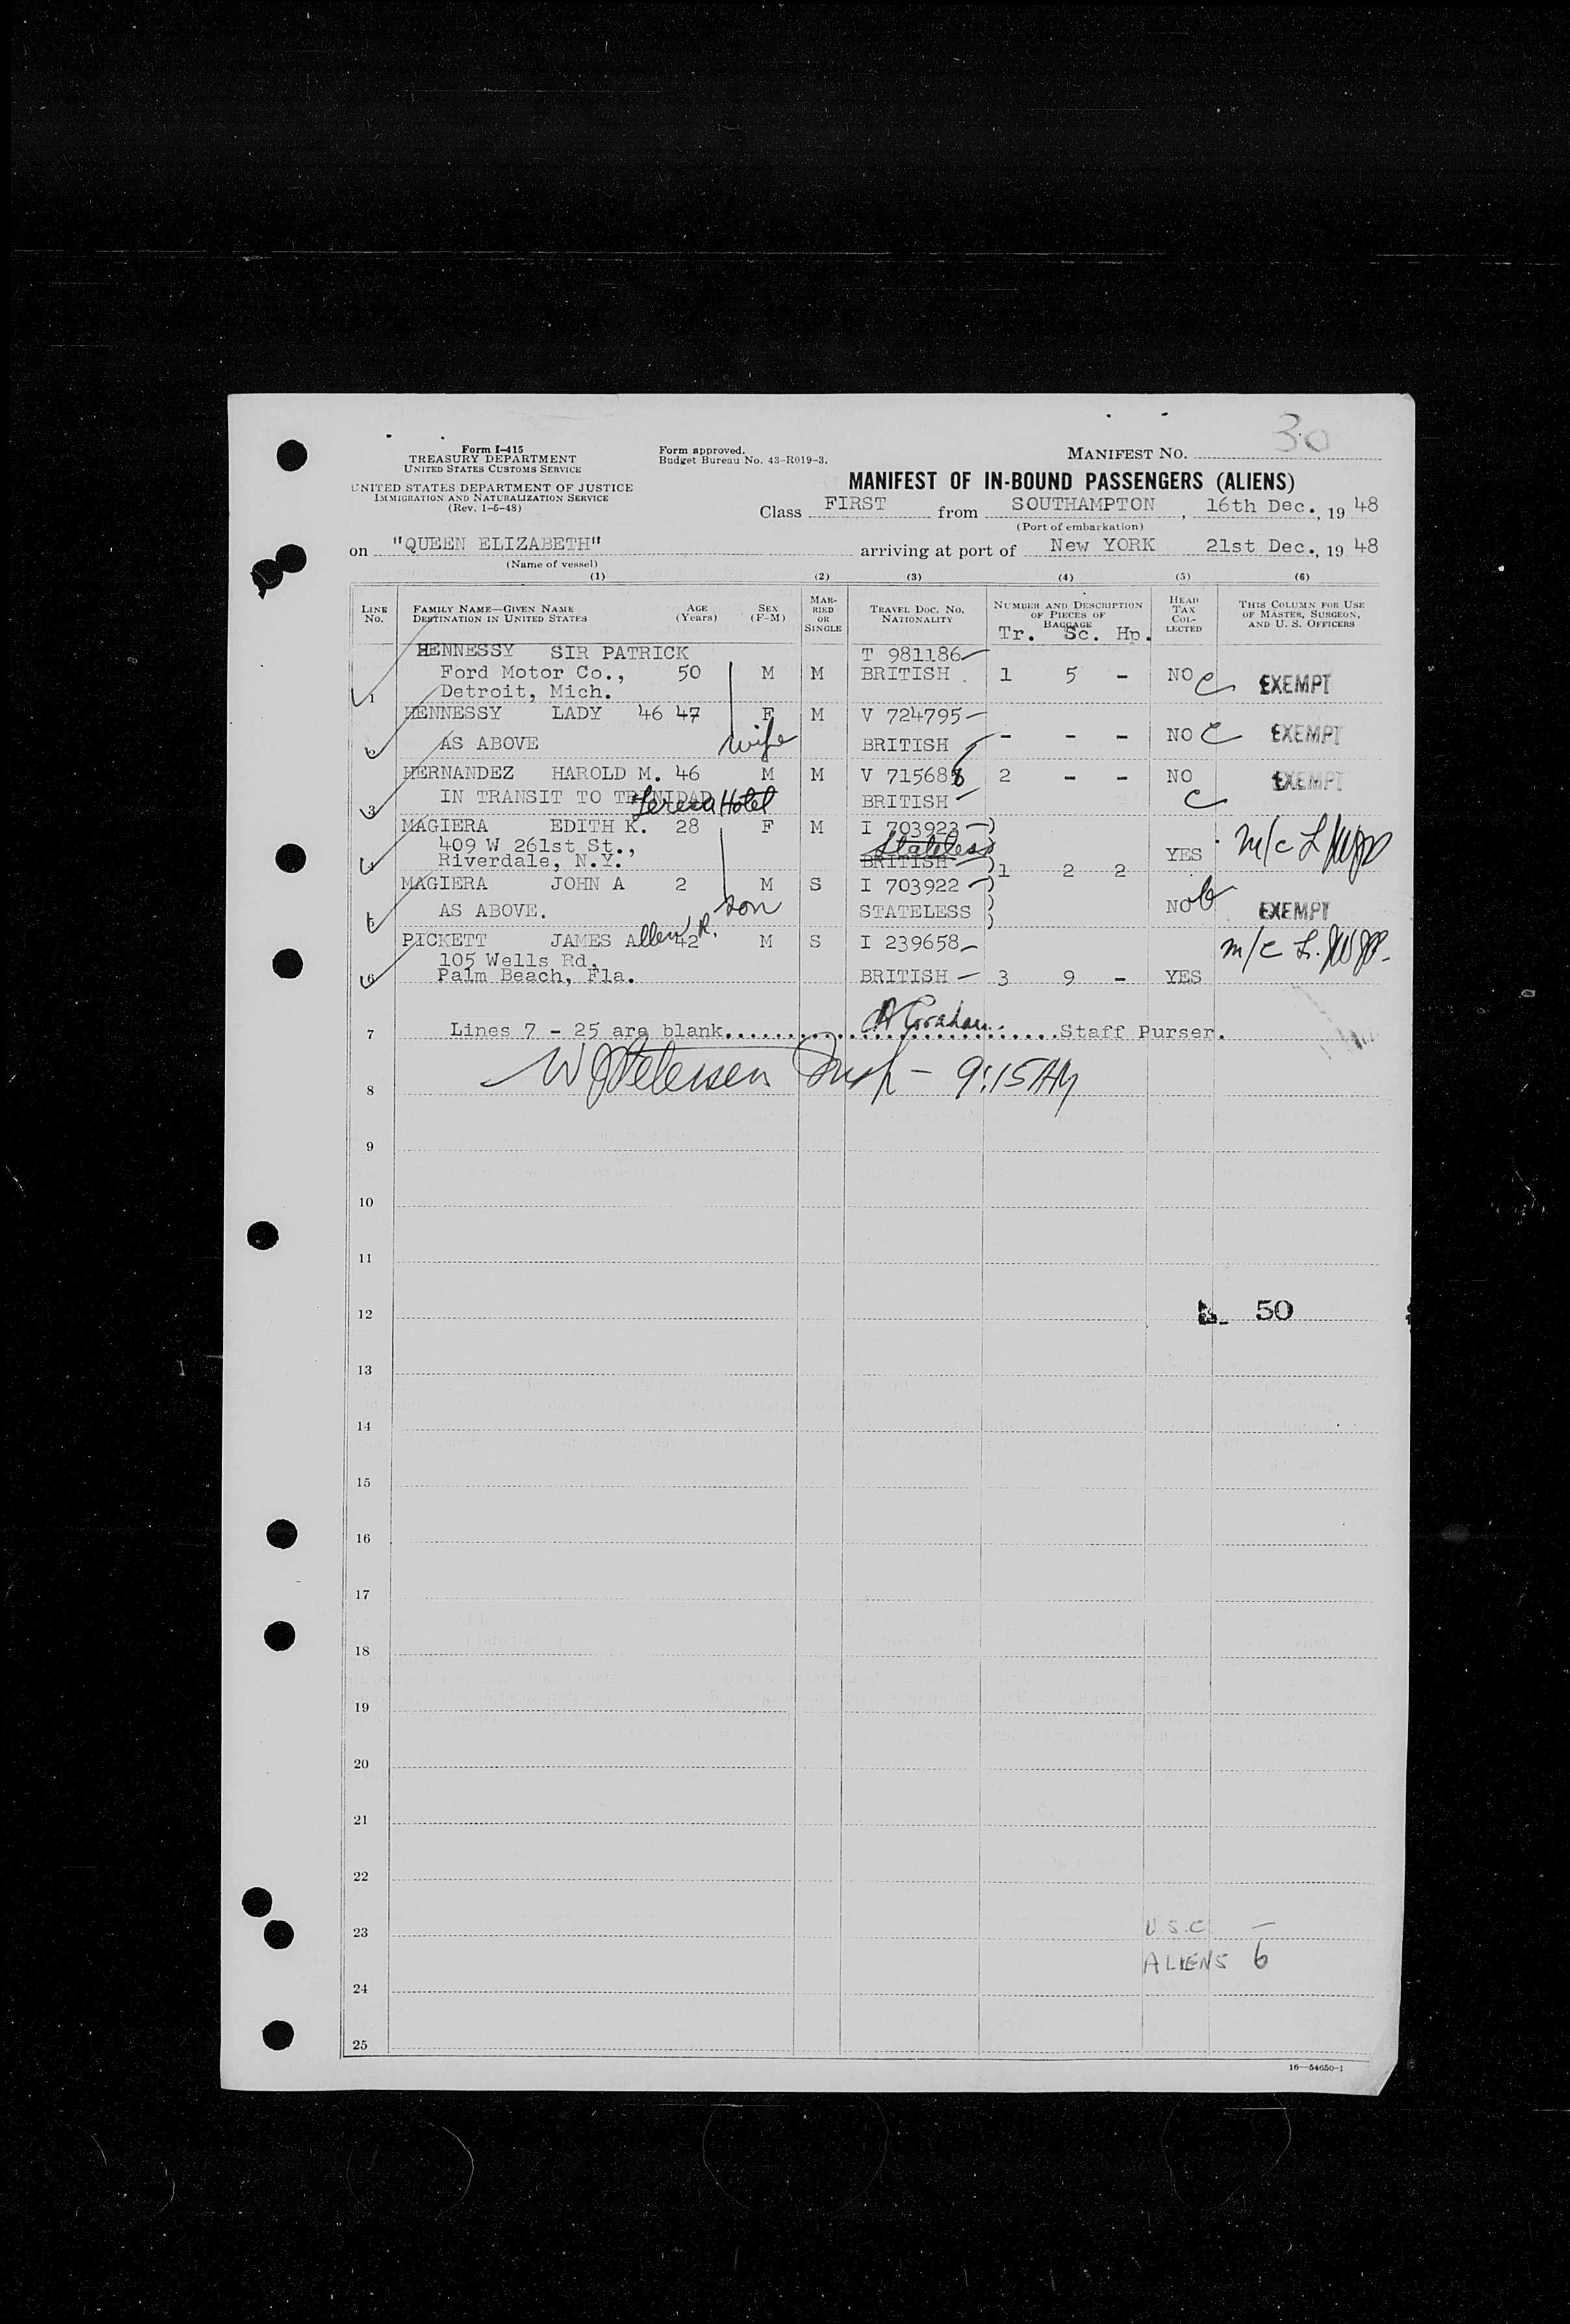 30
Form I-415
TREASURY DEPARTMENT
UNITED STATES CUSTOMS SERVICE
UNITED STATES DEPARTMENT OF JUSTICE
IMMIGRATION AND NATURALIZATION SERVICE
(Rev. 1-5-48)
Form approved.
Budget Bureau No. 43-R019-3.
MANIFEST NO.
MANIFEST OF IN-BOUND PASSENGERS (ALIENS)
Class FIRST from SOUTHAMPTON, 16th Dec., 19 48
(Port of embarkation)
on "QUEEN ELIZABETH" arriving at port of New YORK 21st Dec., 19 48
(Name of vessel)
(1) (2) (3) (4) (5) (6)
LINE NO. FAMILY NAME—GIVEN NAME DESTINATION IN UNITED STATES AGE (Years) SEX (F-M) MARRIED OR SINGLE TRAVEL DOC. NO. NATIONALITY NUMBER AND DESCRIPTION OF PIECES OF BAGGAGE HEAD TAX COLLECTED THIS COLUMN FOR USE OF MASTER, SURGEON, AND U. S. OFFICERS
Tr. Sc. Hp.
HENNESSY SIR PATRICK T 981186
Ford Motor Co., 50 M M BRITISH 1 5 - NO C EXEMPT
1 Detroit, Mich.
HENNESSY LADY 46 47 F M V 724795
2 AS ABOVE wife BRITISH - - - NO C EXEMPT
HERNANDEZ HAROLD M. 46 M M V 71568 2 - - NO EXEMPT
3 IN TRANSIT TO TRINIDAD Hotel BRITISH C
MAGIERA EDITH K. 28 F M I 703923
409 W 261st St., Stateless
4 Riverdale, N.Y. BRITISH 1 2 2 YES m/c L
MAGIERA JOHN A 2 M S I 703922
5 AS ABOVE. son STATELESS NO EXEMPT
PICKETT JAMES Allen R. 42 M S I 239658 m/c L.
105 Wells Rd,
6 Palm Beach, Fla. BRITISH 3 9 - YES
7 Lines 7 - 25 are blank A Graham Staff Purser.
8 W J Petersen Insp - 9:15 AM
9
10
11
12 50
13
14
15
16
17
18
19
20
21
22
23 U.S.C. -
ALIENS 6
24
25
16—54650-1